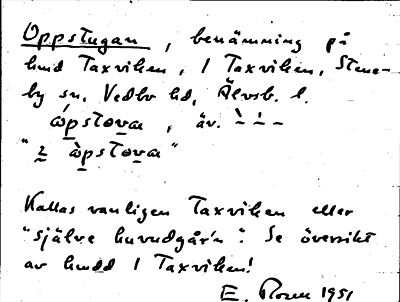 Oppstugan, benämning på
hmd Taxviken, 1 Taxviken, Steneby
sn, Vedbo hd, Älvsb. l.
ὼpstova, äv. ` ´ -
"2 ὼpstova"
Kallas vanligen Taxviken eller
"själve huvudgår'n". Se översikt
av hmdd 1 Taxviken!
E. 1951